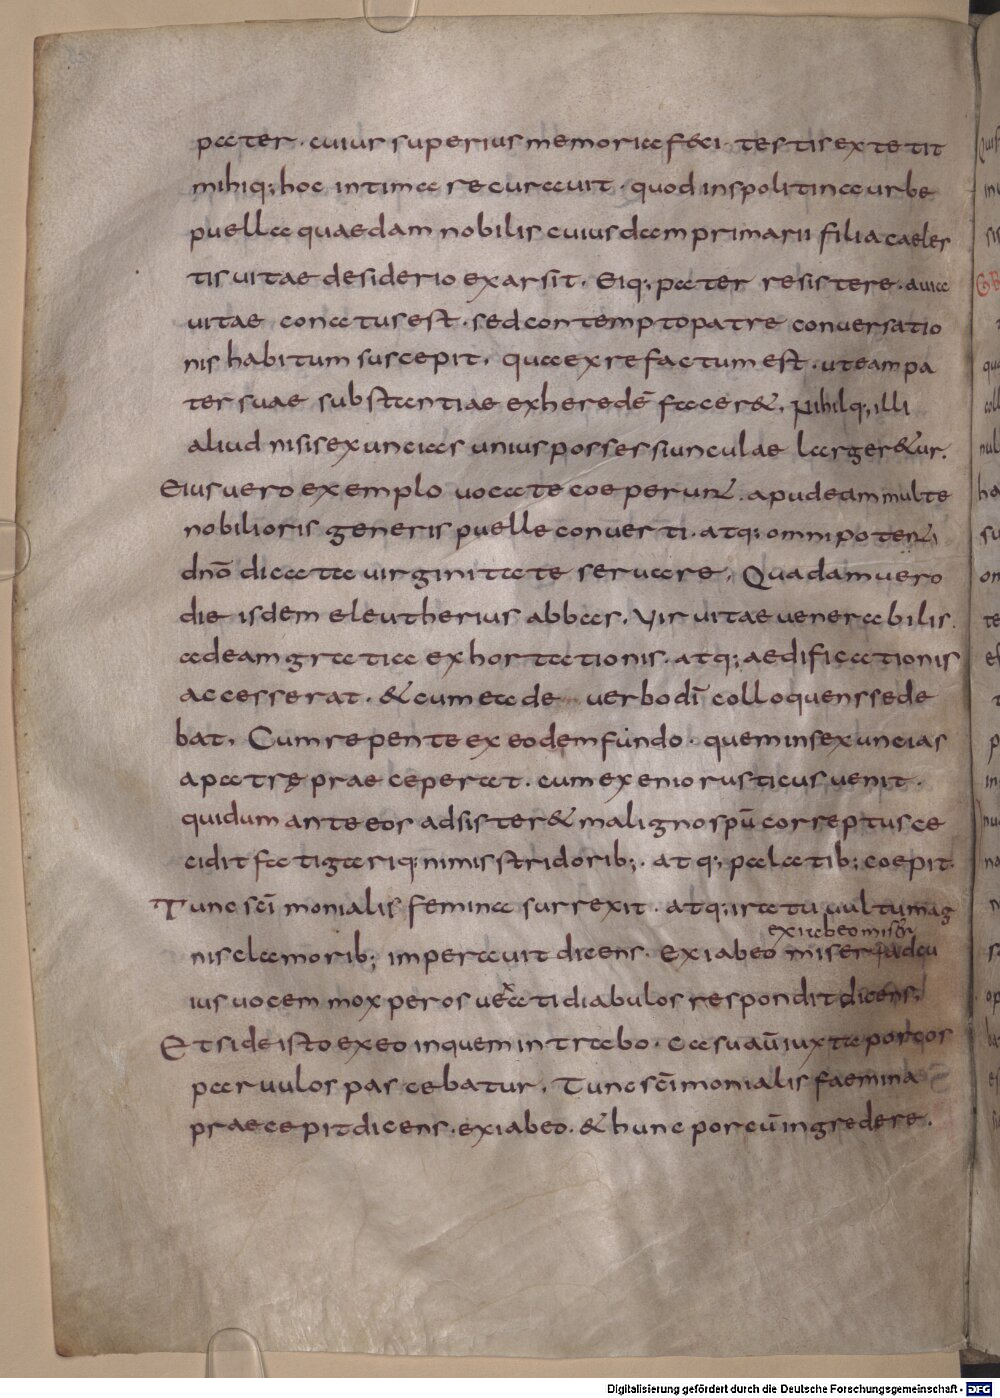 pater. cuius superius memoria feci. testis extetit
mihiq; hoc intimare curauit. quod in spolitina urbe
puella quaedam nobilis cuiusdam primarii filia caeles
tis uitae desiderio exarsit. Eiq; pater resistere. a uia
uitae conatus est. sed contempto patre conuersatio
nis habitum suscepit. qua ex re factum est. ut eam pa
ter suae substantiae exherede facer&. Nihilq; illi
aliud nisi sex uncias unius possessiunculae larger&ur.
Eius uero exemplo uocate coeperunt. apud eam multe
nobilioris generis puelle conuerti. atq; omnipotenti
dnō dicata uirginitate seruare. Quadam uero
die isdem eleutherius abbas. Vir uitae uenerabilis.
ad eam gratia exhortationis. atq; aedificationis
accesserat. & cum ea de uerbo dī colloquens sede
bat. Cum repente ex eodem fundo. quem in sex uncias
a patrę praeceperat. cum exenio rusticus uenit.
qui dum ante eos adsister& maligno spū correptus ce
cidit fatigariq; nimis stridorib;. atq; palatib; coepit.
Tunc scīmonialis femina surrexit. atq; irata uultu mag
exi ab eo miser
nis clamorib; imperauit dicens. Exi ab eo miser ad cu
ius uocem mox per os uexati diabulos respondit dicens;
Et si de isto exeo in quem intrabo. Casu aū iuxta porcos
paruulos pascebatur. Tunc scīmonialis faemina
praecepit dicens. exi ab eo. & hunc porcū ingredere.
Digitalisierung gefördert durch die Deutsche Forschungsgemeinschaft - DFG